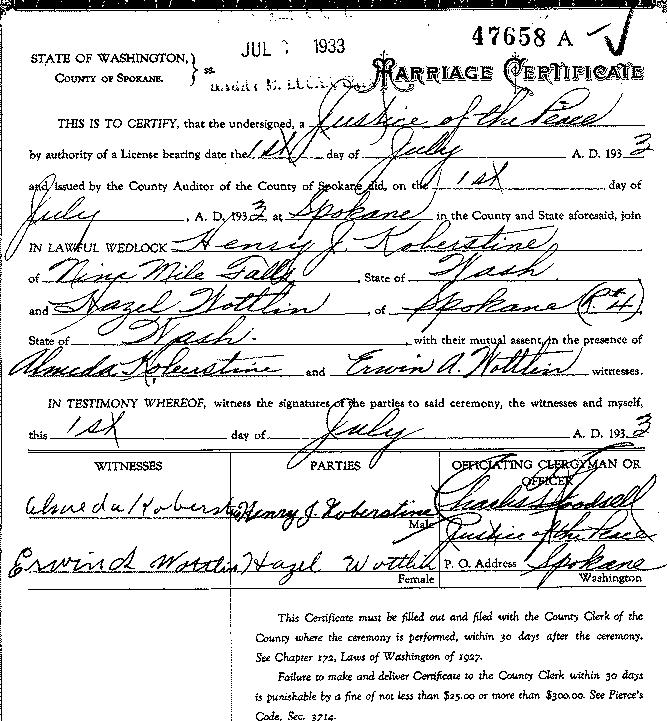 JUL 1933
47658 A
STATE OF WASHINGTON,
COUNTY OF SPOKANE.
ss.
MARRIAGE CERTIFICATE
THIS IS TO CERTIFY, that the undersigned, a Justice of the Peace
by authority of a License bearing date the 1st day of July A. D. 1933
and issued by the County Auditor of the County of Spokane did, on the 1st day of
July, A. D. 1933 at Spokane in the County and State aforesaid, join
IN LAWFUL WEDLOCK Henry J. Koberstine
of Nine Mile Falls, State of Wash
and Hazel Wottlin, of Spokane (Rt 4)
State of Wash., with their mutual assent, in the presence of
Almeda Koberstine and Erwin A. Wottlin witnesses.
IN TESTIMONY WHEREOF, witness the signatures of the parties to said ceremony, the witnesses and myself,
this 1st day of July A. D. 1933
WITNESSES PARTIES OFFICIATING CLERGYMAN OR
OFFICER
Almeda Koberstine Henry J. Koberstine Charles Goodsell
Male Justice of the Peace
Erwin A Wottlin Hazel Wottlin P. O. Address Spokane
Female Washington
This Certificate must be filled out and filed with the County Clerk of the
County where the ceremony is performed, within 30 days after the ceremony.
See Chapter 172, Laws of Washington of 1927.
Failure to make and deliver Certificate to the County Clerk within 30 days
is punishable by a fine of not less than $25.00 or more than $300.00. See Pierce's
Code, Sec. 3714.